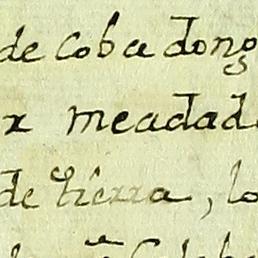 de Coba dong
x meadad
de tierra, lo